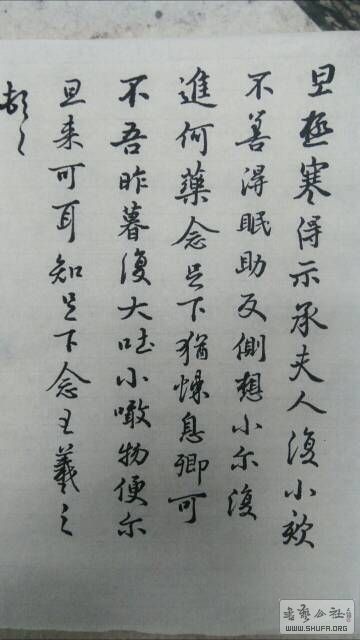 旦極寒得示承夫人復小欬
不善得眠助反側想小尔復
進何藥念足下猶悚息卿可
不吾昨暮復大吐小噉物便尔
旦来可耳知足下念王羲之
頓首
書藝公社
WWW.SHUFA.ORG